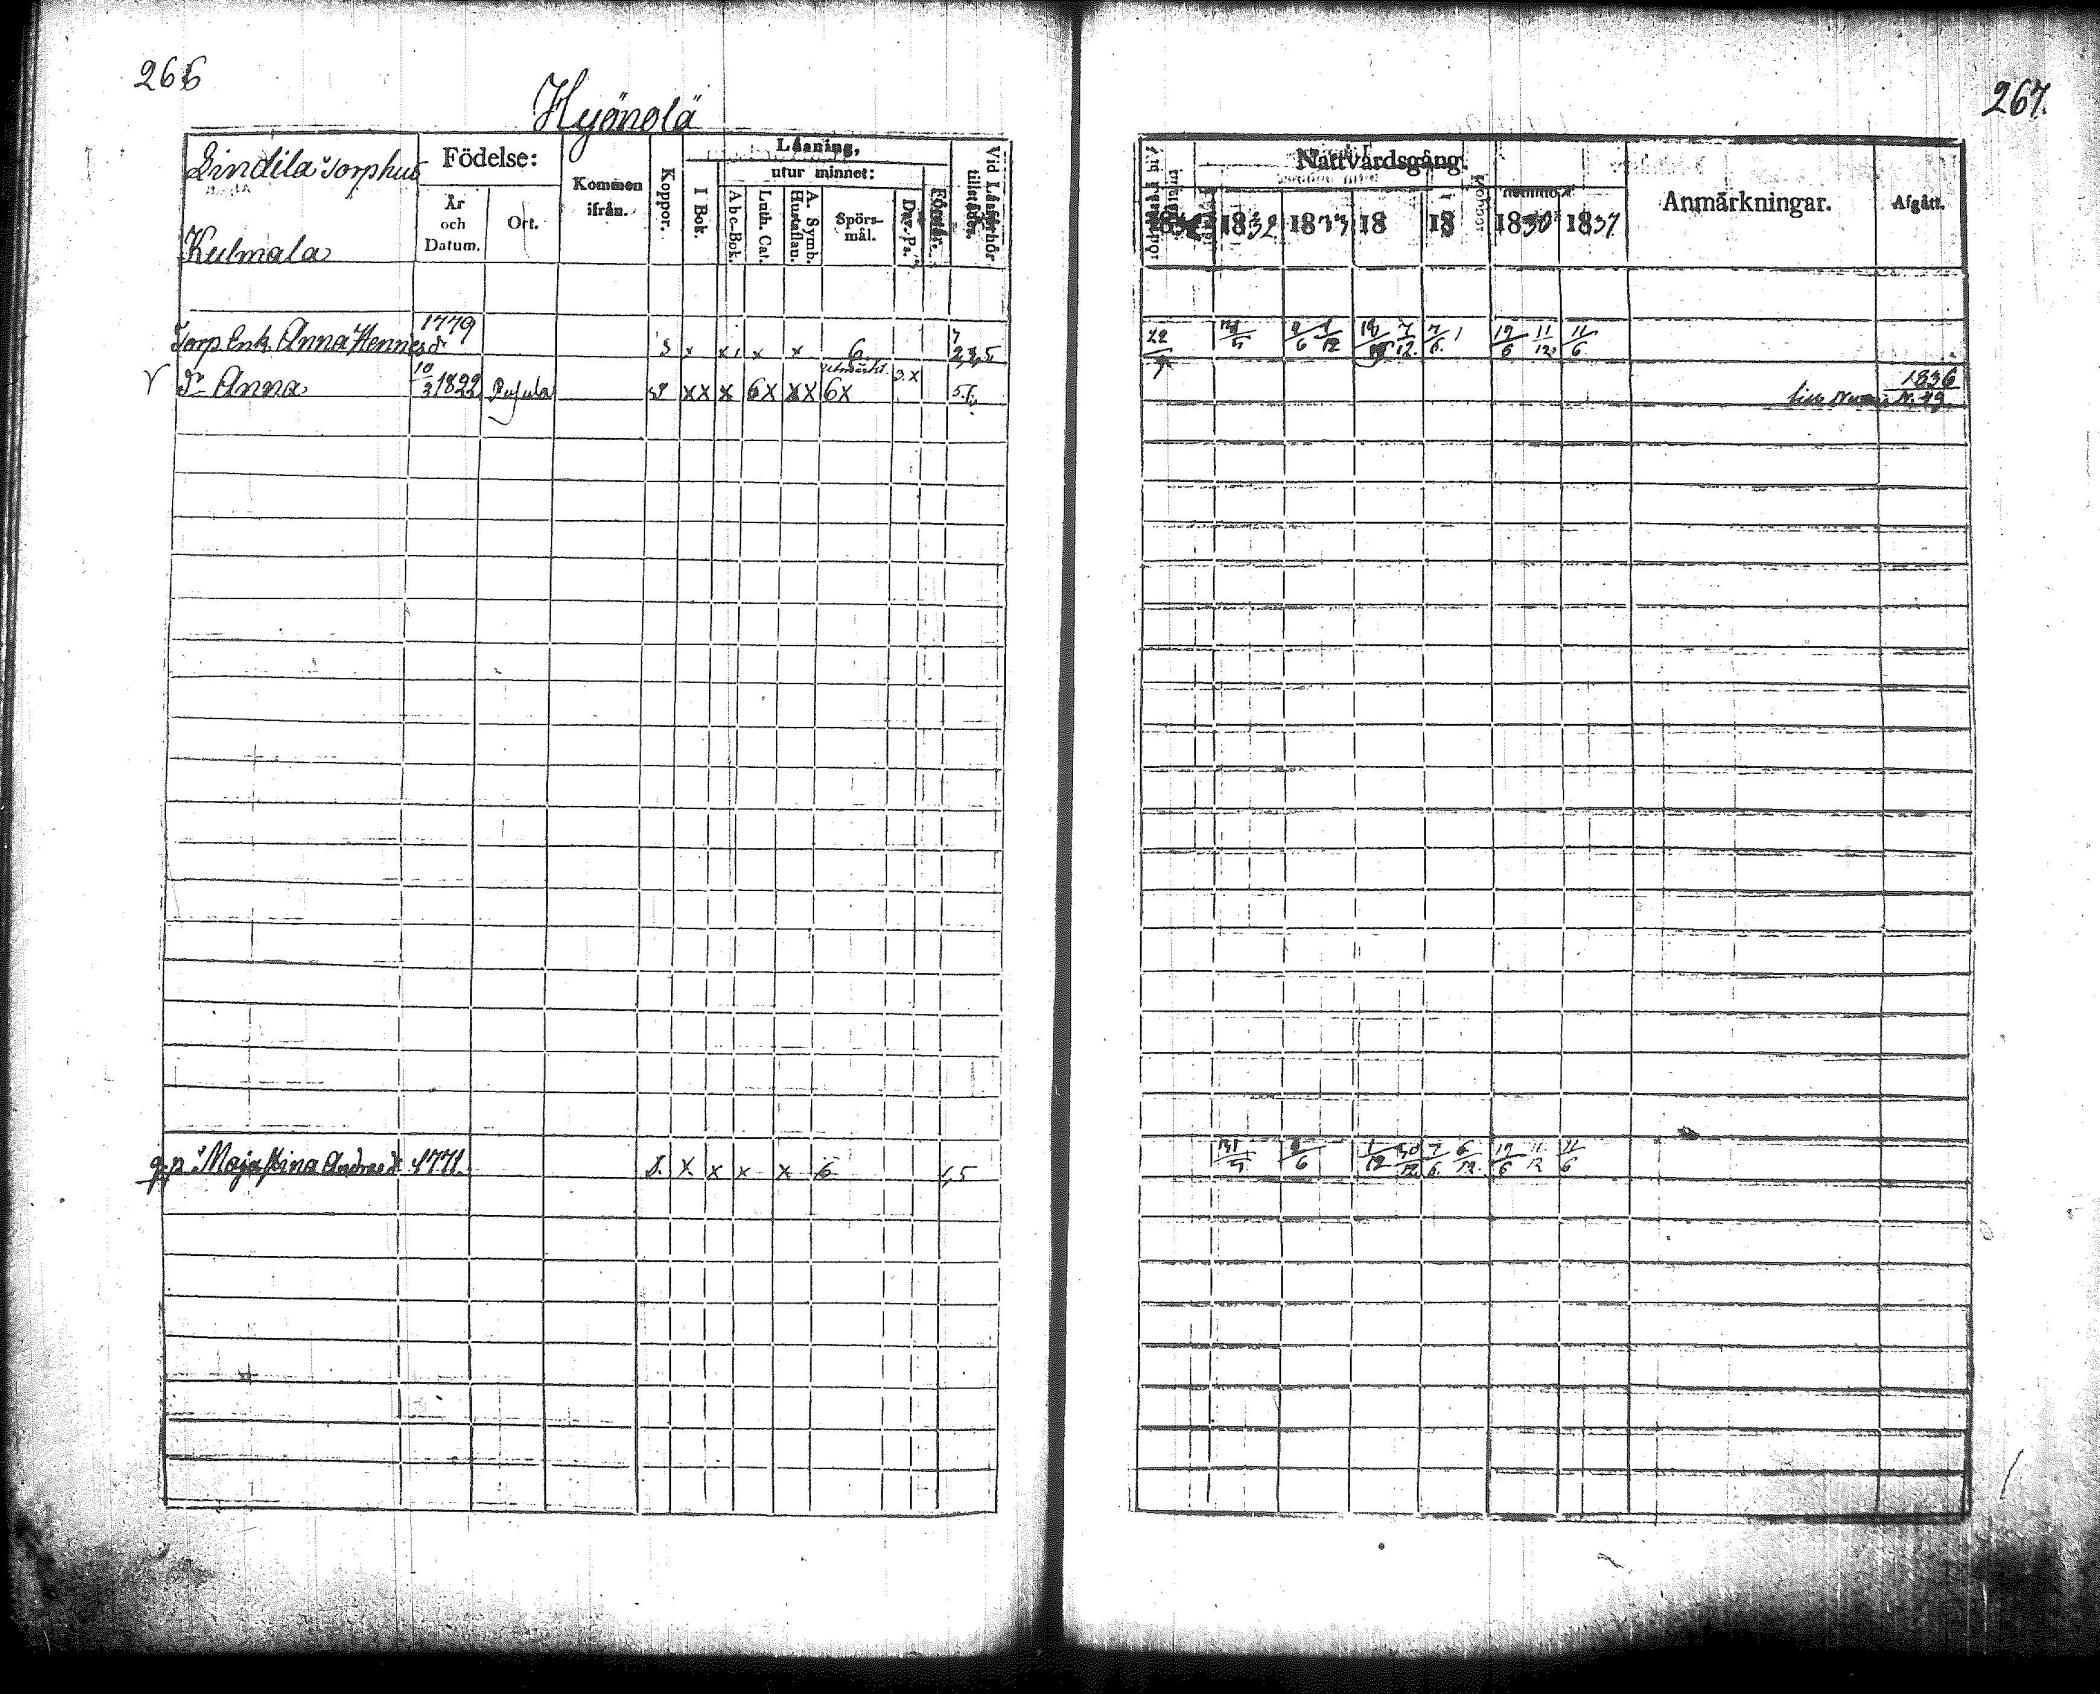 266
Hyönolä
Lindila Torphus
Kulmala
Födelse:
År och Datum.
Ort.
Kommen ifrån.
Koppor.
Läsning,
I Bok.
utur minnet:
Abc-Bok.
Luth. Cat.
A. Symb. Hustaflan.
Spörsmål.
Dav. Ps.
Förstår.
Vid Läsförhör tillstädes.
Torp. Enk. Anna Hennesdr 1779 s x x x x 6
Dr Anna 10/3 1822 Pusula xx x 6x xx 6x 3.x
Maja Stina Andreedr 1771. x x x x 6 5
267.
Nattvardsgång.
1832 1833 18 18 1836 1837
Anmärkningar.
Afgått.
22/7 2/6 12 7/12. 7/6. 12/6 11/12. 11/6
1836
N. 49
2/6 7/6. 6/12. 12/6 11/12 11/6